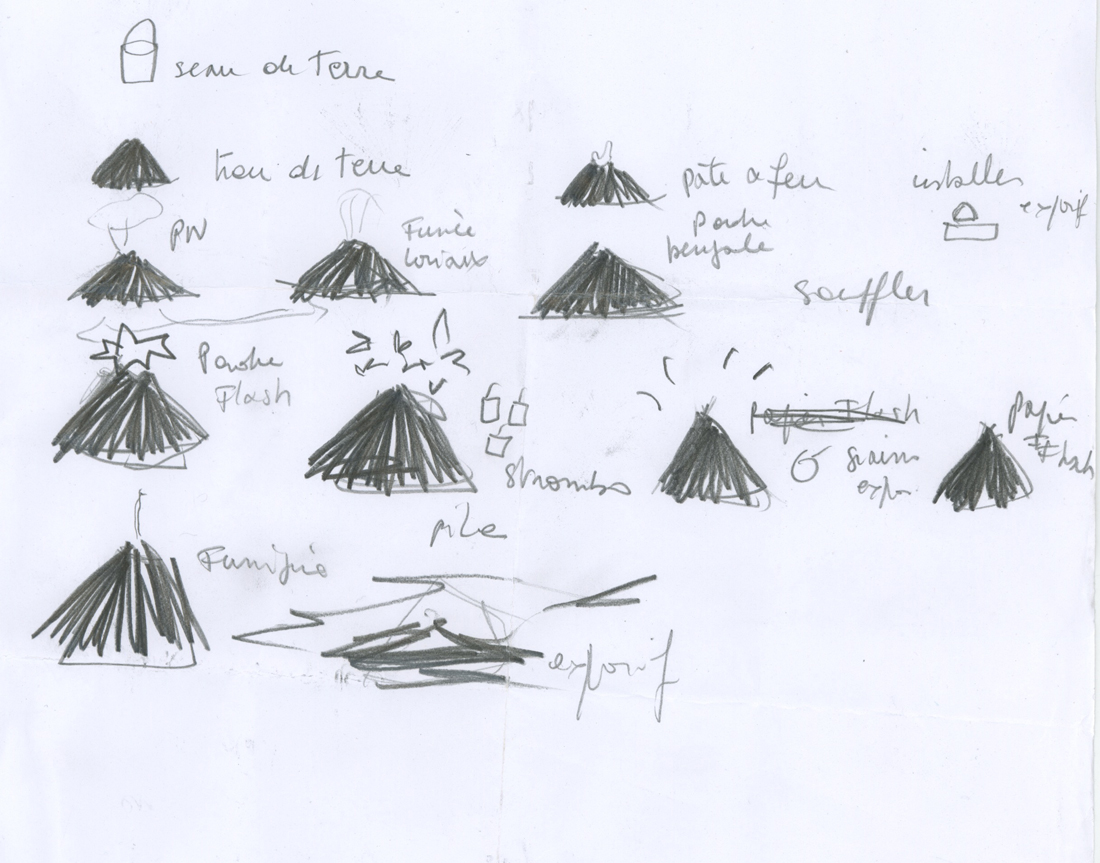 seau de terre
trou de terre
pâte à feu
installer
explosif
PN
Fumée
Poudre
bengale
souffler
Poudre
Flash
papier Flash
grains
explo.
papier
Flash
strombo
pile
Fumigène
explosif